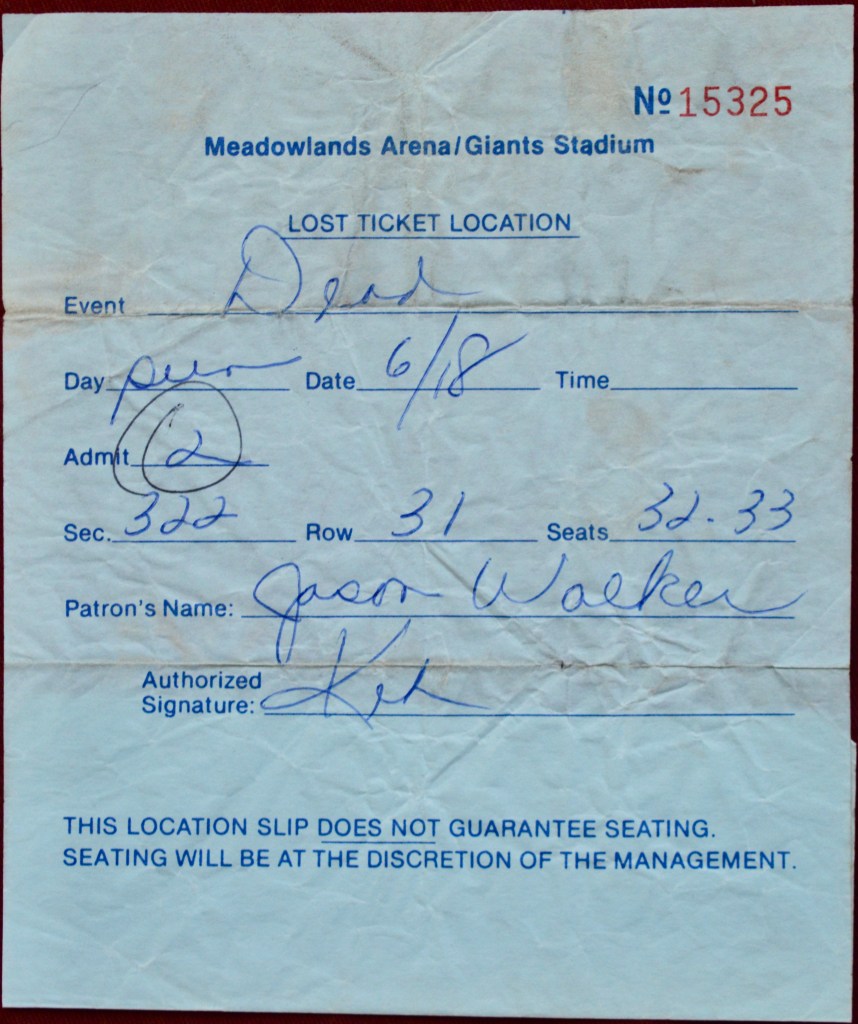 Nº 15325
Meadowlands Arena/Giants Stadium
LOST TICKET LOCATION
Event Dead
Day Date 6/18 Time
Admit 2
Sec. 322 Row 31 Seats 32-33
Patron's Name: Jason Walker
Authorized
Signature:
THIS LOCATION SLIP DOES NOT GUARANTEE SEATING.
SEATING WILL BE AT THE DISCRETION OF THE MANAGEMENT.